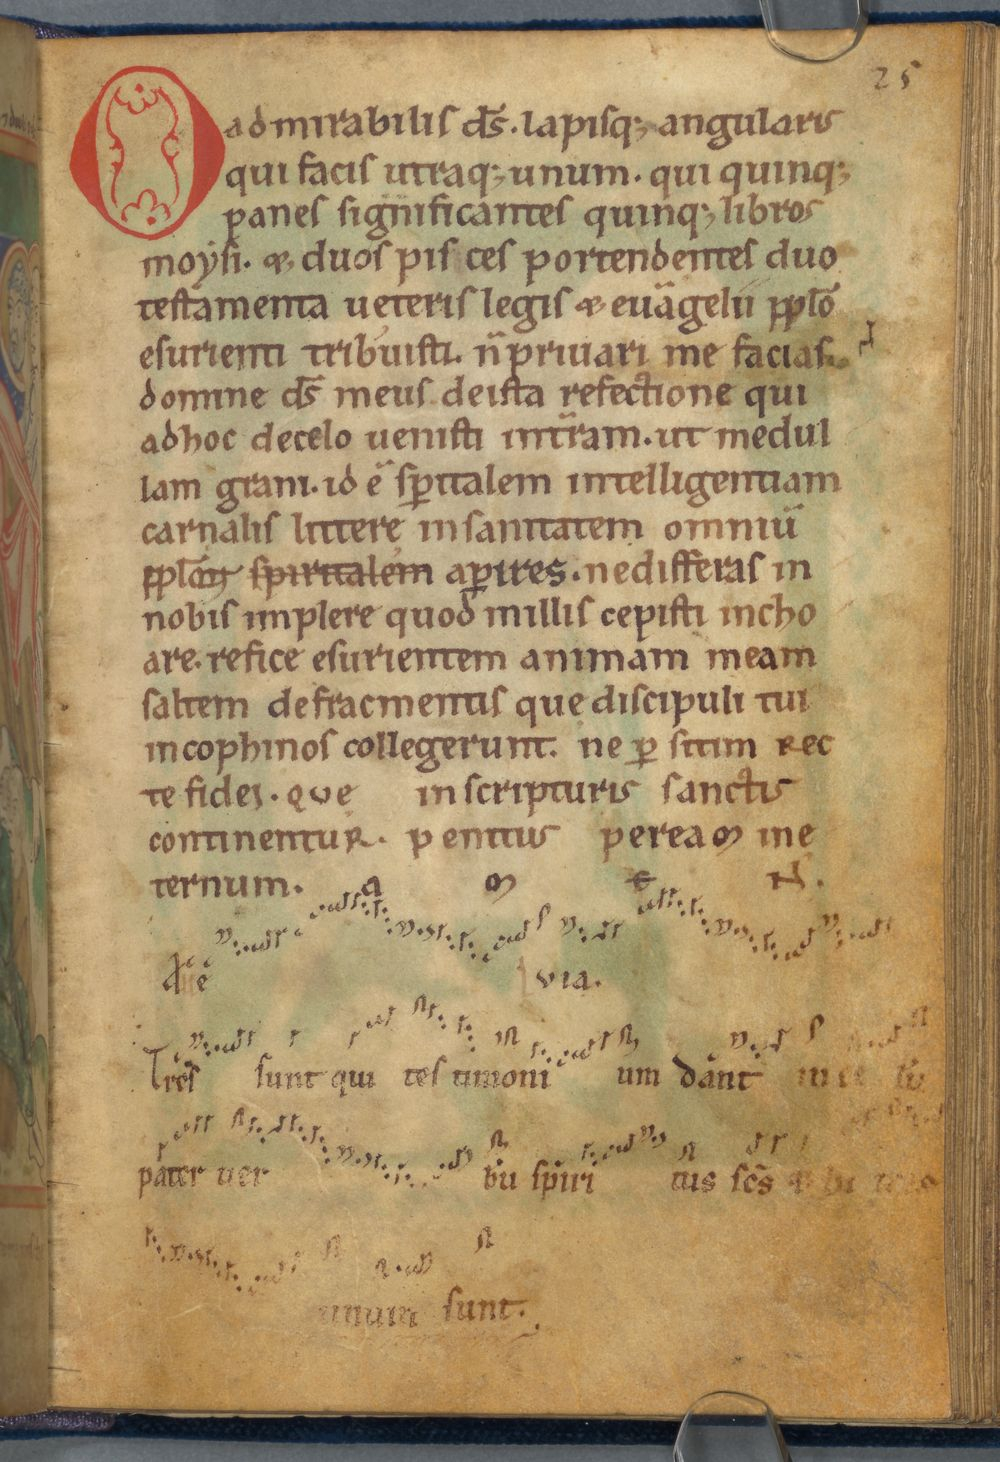 25
O admirabilis ds̄. lapisq; angularis
qui facis utraq; unum. qui quinq;
panes significantes quinq; libros
moysi. & duos pis ces portendentes duo
testamenta ueteris legis & euāgelii pplō
esurienti tribuisti. n̄ priuari me facias
domine ds̄ meus deista refectione qui
adhoc decelo uenisti intrām. ut medul
lam grani. id ē sp̄italem intelligentiam
carnalis littere insanitatem omniū
spiritalem ap̄ires. nedifferas in
nobis implere quod millis cepisti incho
are. refice esurientem animam meam
saltem defracmentis que discipuli tui
incophinos collegerunt. ne p̄ sitim rec
te fidei. que inscripturis sanctis
continentur. penitus peream ine
ternum. a m e n.
Alle via.
Tres sunt qui tes timoni um dant in ce
pater uer bū spiri tus scs̄ & hi
unum sunt.